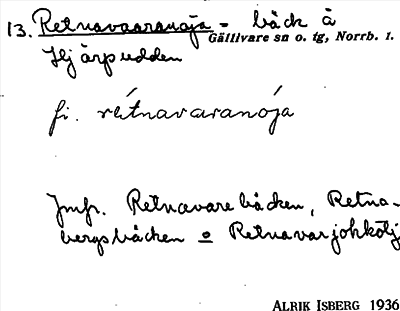 13. Retnavaaranoja = bäck å
Gällivare sn o. tg, Norrb. l.
Hjärpudden
fi. rétnavaranója
Jmfr. Retnavarebäcken, Retna-
bergsbäcken o Retnavarjohkålj
ALRIK ISBERG 1936